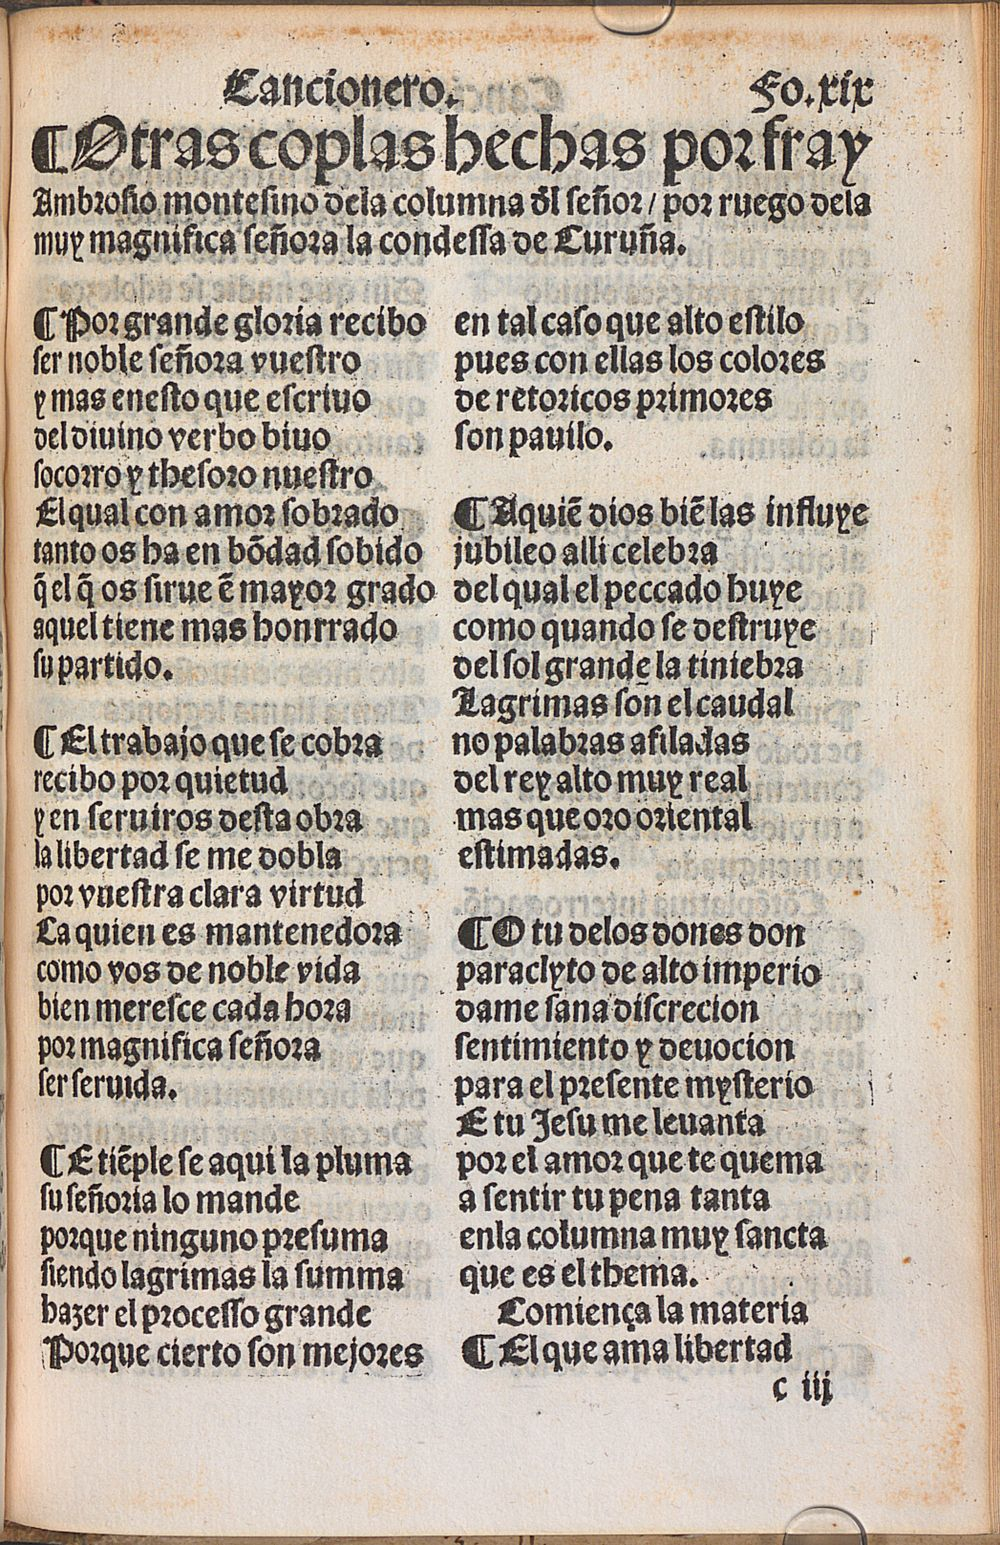 Cancionero. Fo.xix
¶Otras coplas hechas por fray
Ambrosio montesino dela columna dl̃ señor / por ruego dela
muy magnifica señora la condessa de Curuña.
¶Por grande gloria recibo
ser noble señora vuestro
y mas enesto que escriuo
del diuino verbo biuo
socorro y thesoro nuestro
El qual con amor sobrado
tanto os ha en bõdad sobido
q̃ el q̃ os sirue ẽ mayor grado
aquel tiene mas honrrado
su partido.
¶El trabajo que se cobra
recibo por quietud
y en seruiros desta obra
la libertad se me dobla
por vuestra clara virtud
La quien es mantenedora
como vos de noble vida
bien meresce cada hora
por magnifica señora
ser seruida.
¶E tiẽple se aqui la pluma
su señoria lo mande
porque ninguno presuma
siendo lagrimas la summa
hazer el processo grande
Porque cierto son mejores
en tal caso que alto estilo
pues con ellas los colores
de retoricos primores
son pauilo.
¶Aquiẽ dios biẽ las influye
jubileo alli celebra
del qual el peccado huye
como quando se destruye
del sol grande la tiniebra
Lagrimas son el caudal
no palabras afiladas
del rey alto muy real
mas que oro oriental
estimadas.
¶O tu delos dones don
paraclyto de alto imperio
dame sana discrecion
sentimiento y deuocion
para el presente mysterio
E tu Jesu me leuanta
por el amor que te quema
a sentir tu pena tanta
enla columna muy sancta
que es el thema.
Comiença la materia
¶El que ama libertad
c iij